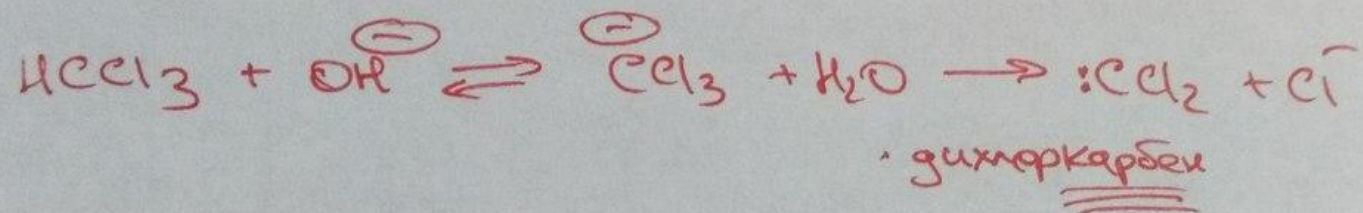 HCCl₃ + OH⁻ ⇌ ⁻CCl₃ + H₂O → :CCl₂ + Cl⁻
дихлоркарбен